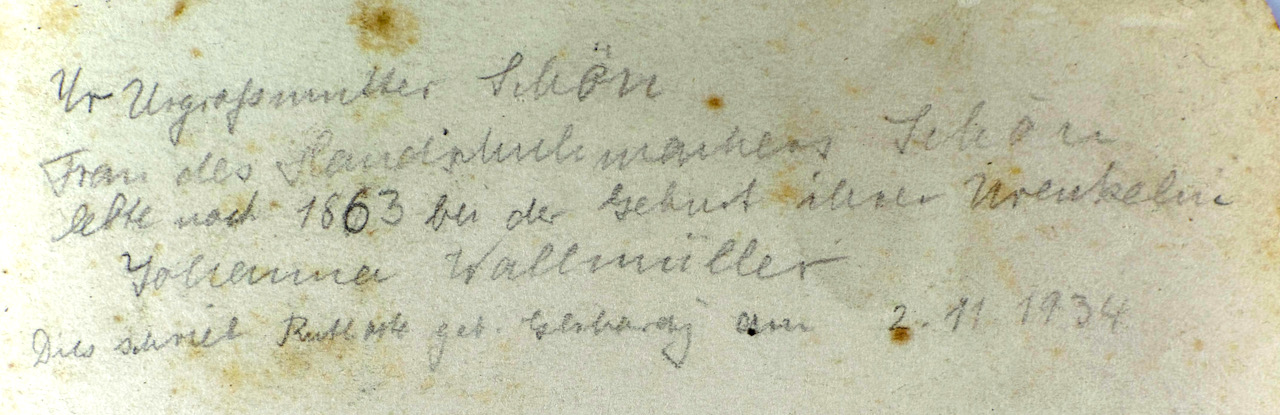 Ur Urgroßmutter Schön
Frau des Handschuhmachers Schön
lebte noch 1863 bei der Geburt ihrer Urenkelin
Johanna Wallmüller
Dies schrieb geb. am 2. 11. 1934